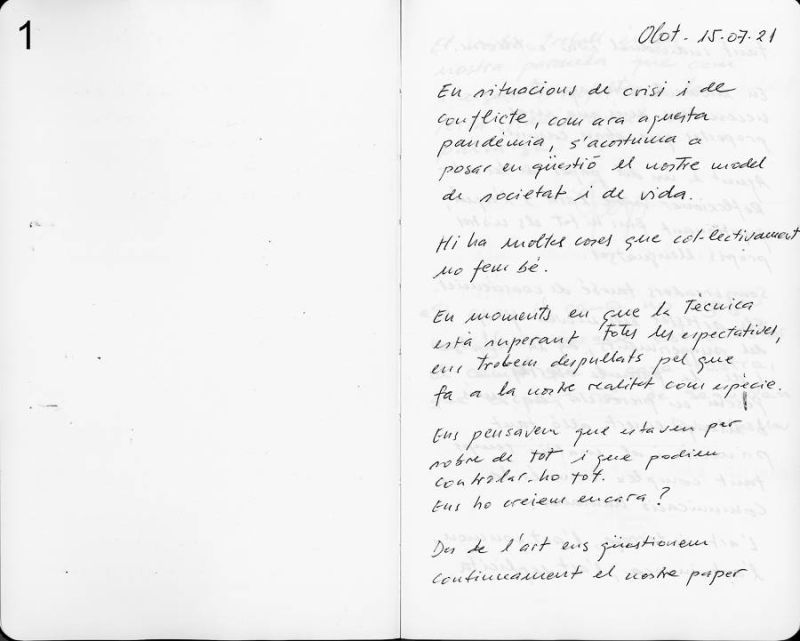 1
Olot - 15.07.21
En situacions de crisi i de
conflicte, com ara aquesta
pandèmia, s'acostuma a
posar en qüestió el nostre model
de societat i de vida.
Hi ha moltes coses que col·lectivament
no fem bé.
En moments en que la Tècnica
està superant totes les espectatives,
ens trobem despullats pel que
fa a la nostre realitat com espècie.
Ens pensavem que estavem per
sobre de tot i que podiem
controlar-ho tot.
Ens ho creiem encara?
Des de l'art ens qüestionem
continuament el nostre paper